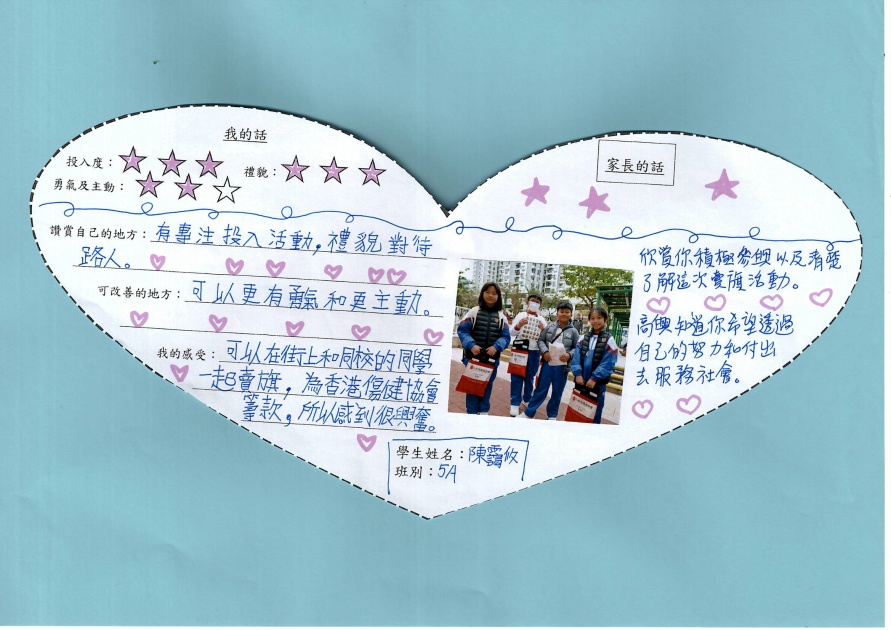 我的話
投入度：
禮貌：
勇氣及主動：
讚賞自己的地方：有專注投入活動，禮貌對待
路人。
可改善的地方：可以更有勇氣和更主動。
我的感受：可以在街上和同校的同學
一起賣旗，為香港傷健協會
籌款，所以感到很興奮。
學生姓名：陳靄攸
班別：5A
家長的話
欣賞你積極參與以及清楚
了解這次賣旗活動。
高興知道你希望透過
自己的努力和付出
去服務社會。